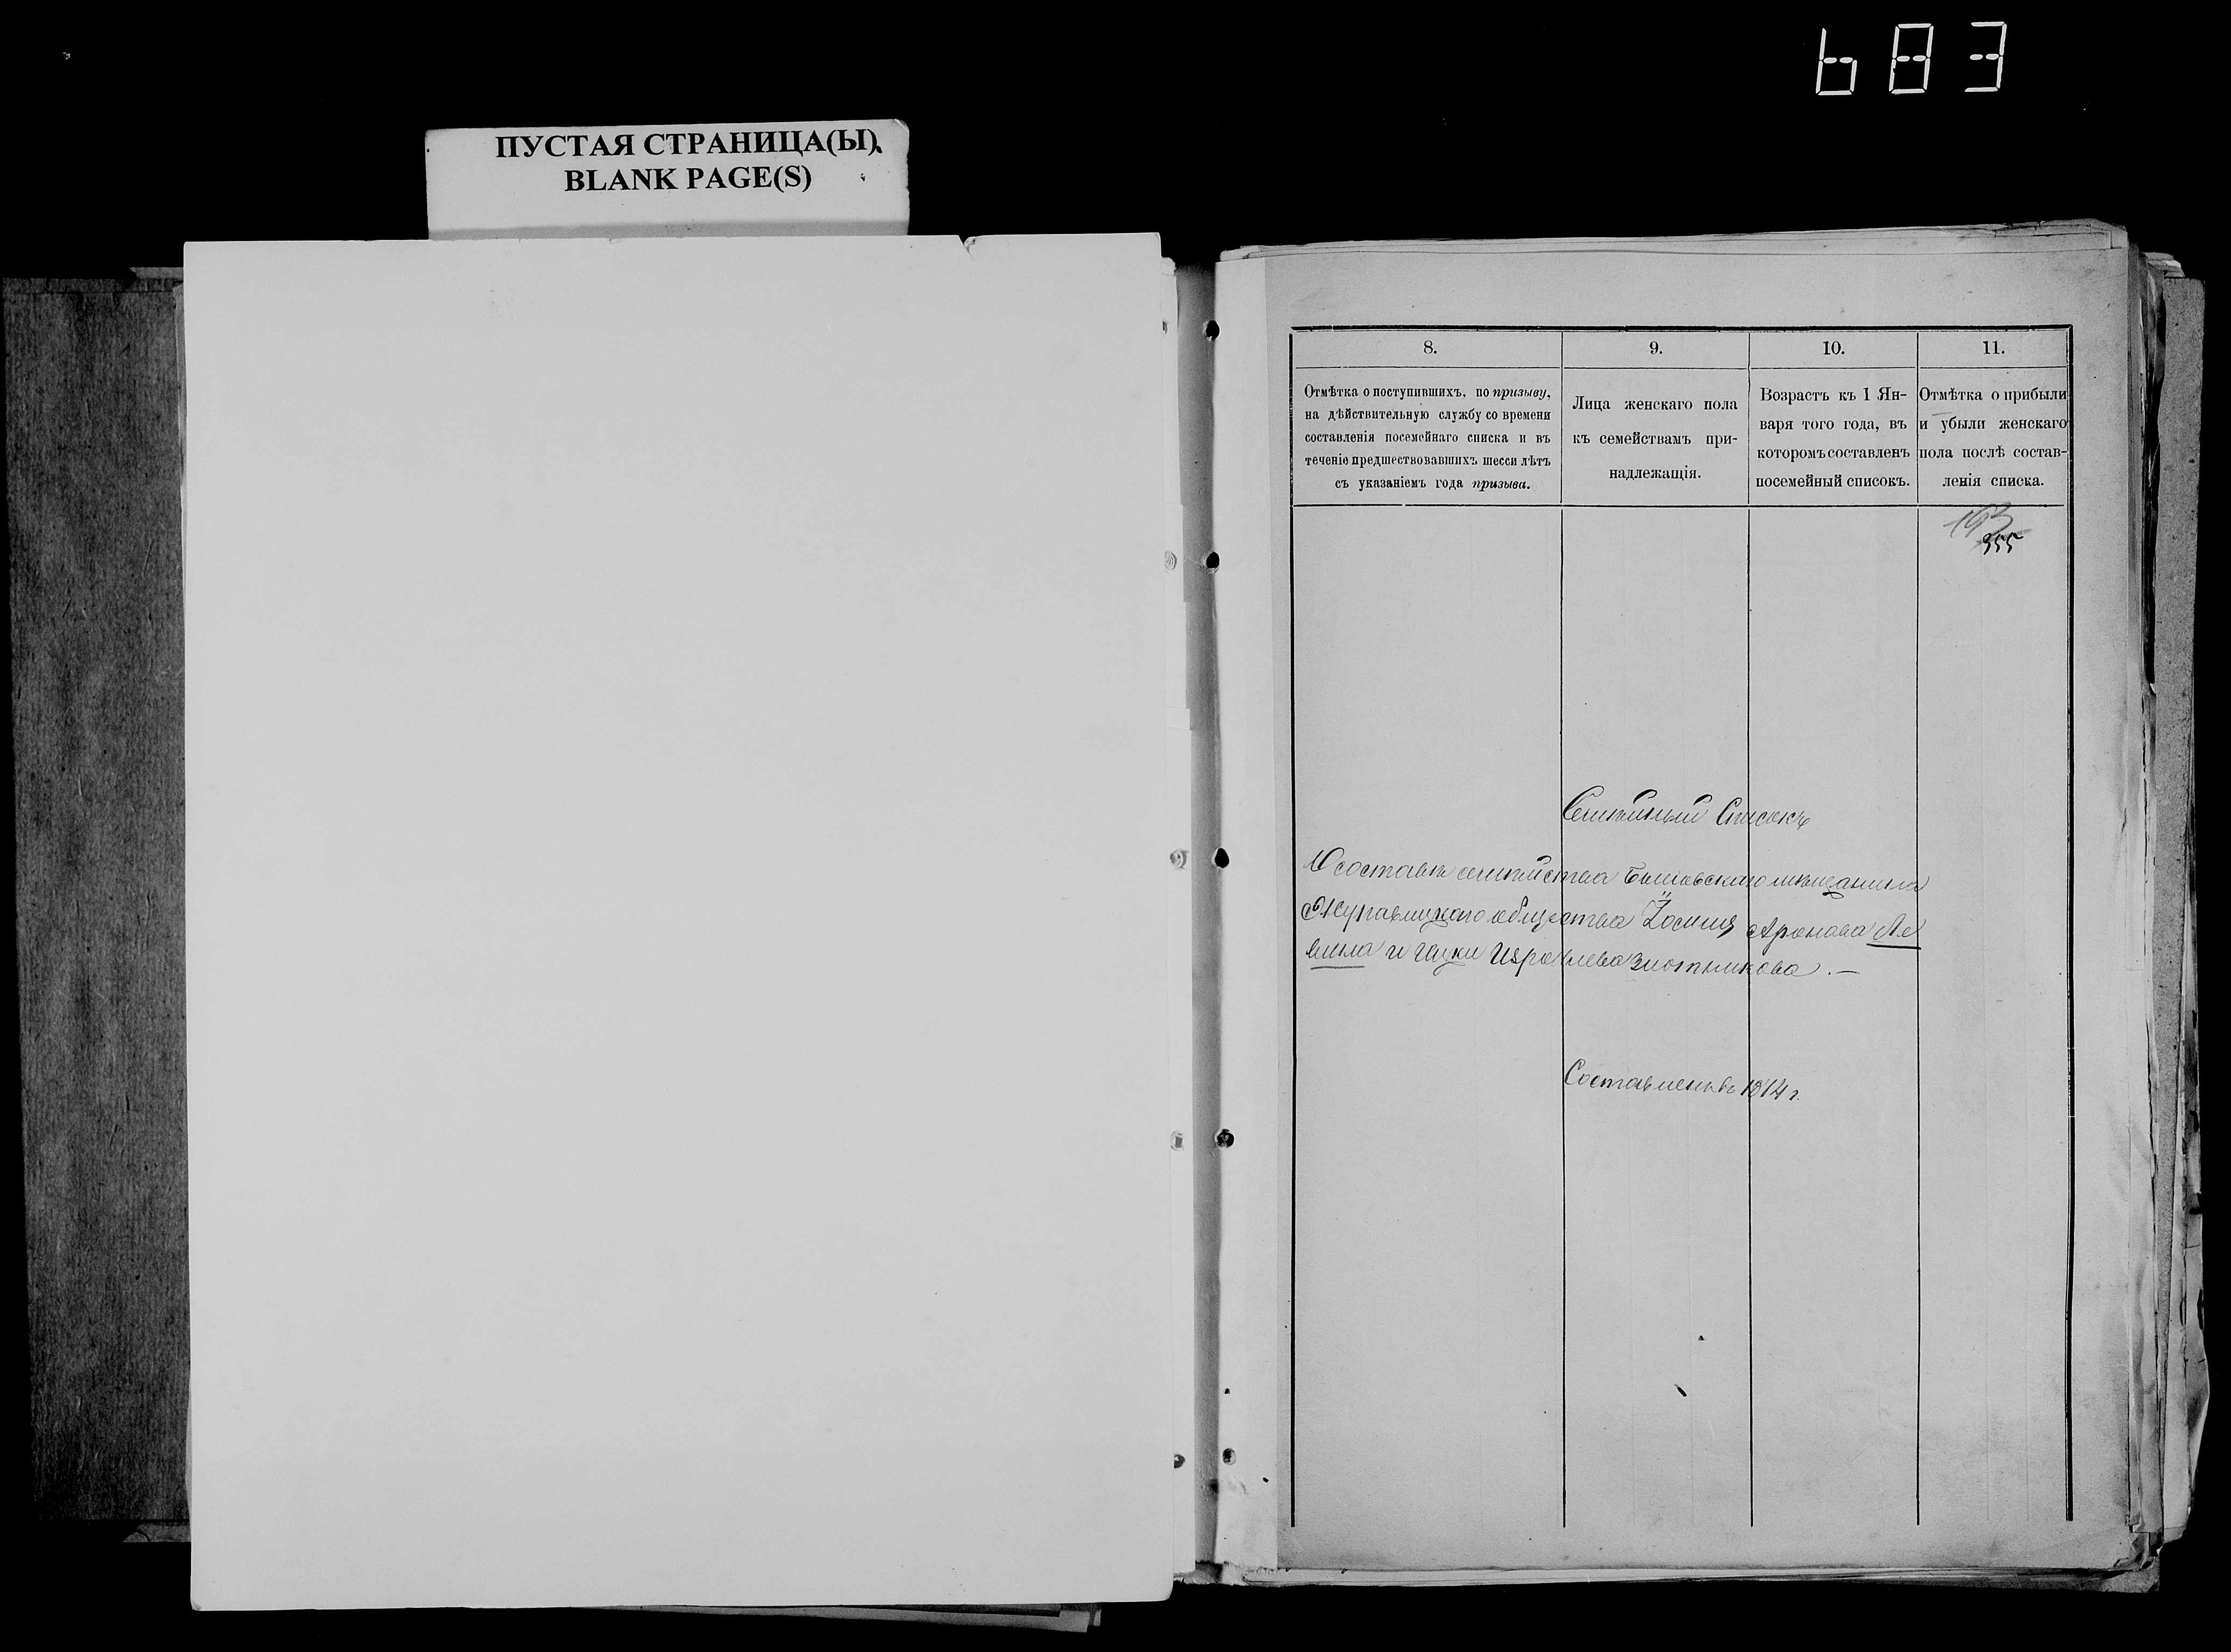 683
ПУСТАЯ СТРАНИЦА(Ы)
BLANK PAGE(S)
8.
Отмѣтка о поступившихъ, по призыву,
на дѣйствительную службу со времени
составленія посемейнаго списка и въ
теченіе предшествовавшихъ шести лѣтъ
съ указаніемъ года призыва.
9.
Лица женскаго пола
къ семействамъ при-
надлежащія.
10.
Возрастъ къ 1 Ян-
варя того года, въ
которомъ составленъ
посемейный списокъ.
11.
Отмѣтка о прибыли
и убыли женскаго
пола послѣ состав-
ленія списка.
193
355
Семейный Списокъ
О составѣ семейства мѣщанина
Журавицкаго общества Аронова Ле
вина и
Составленъ въ 1874 г.